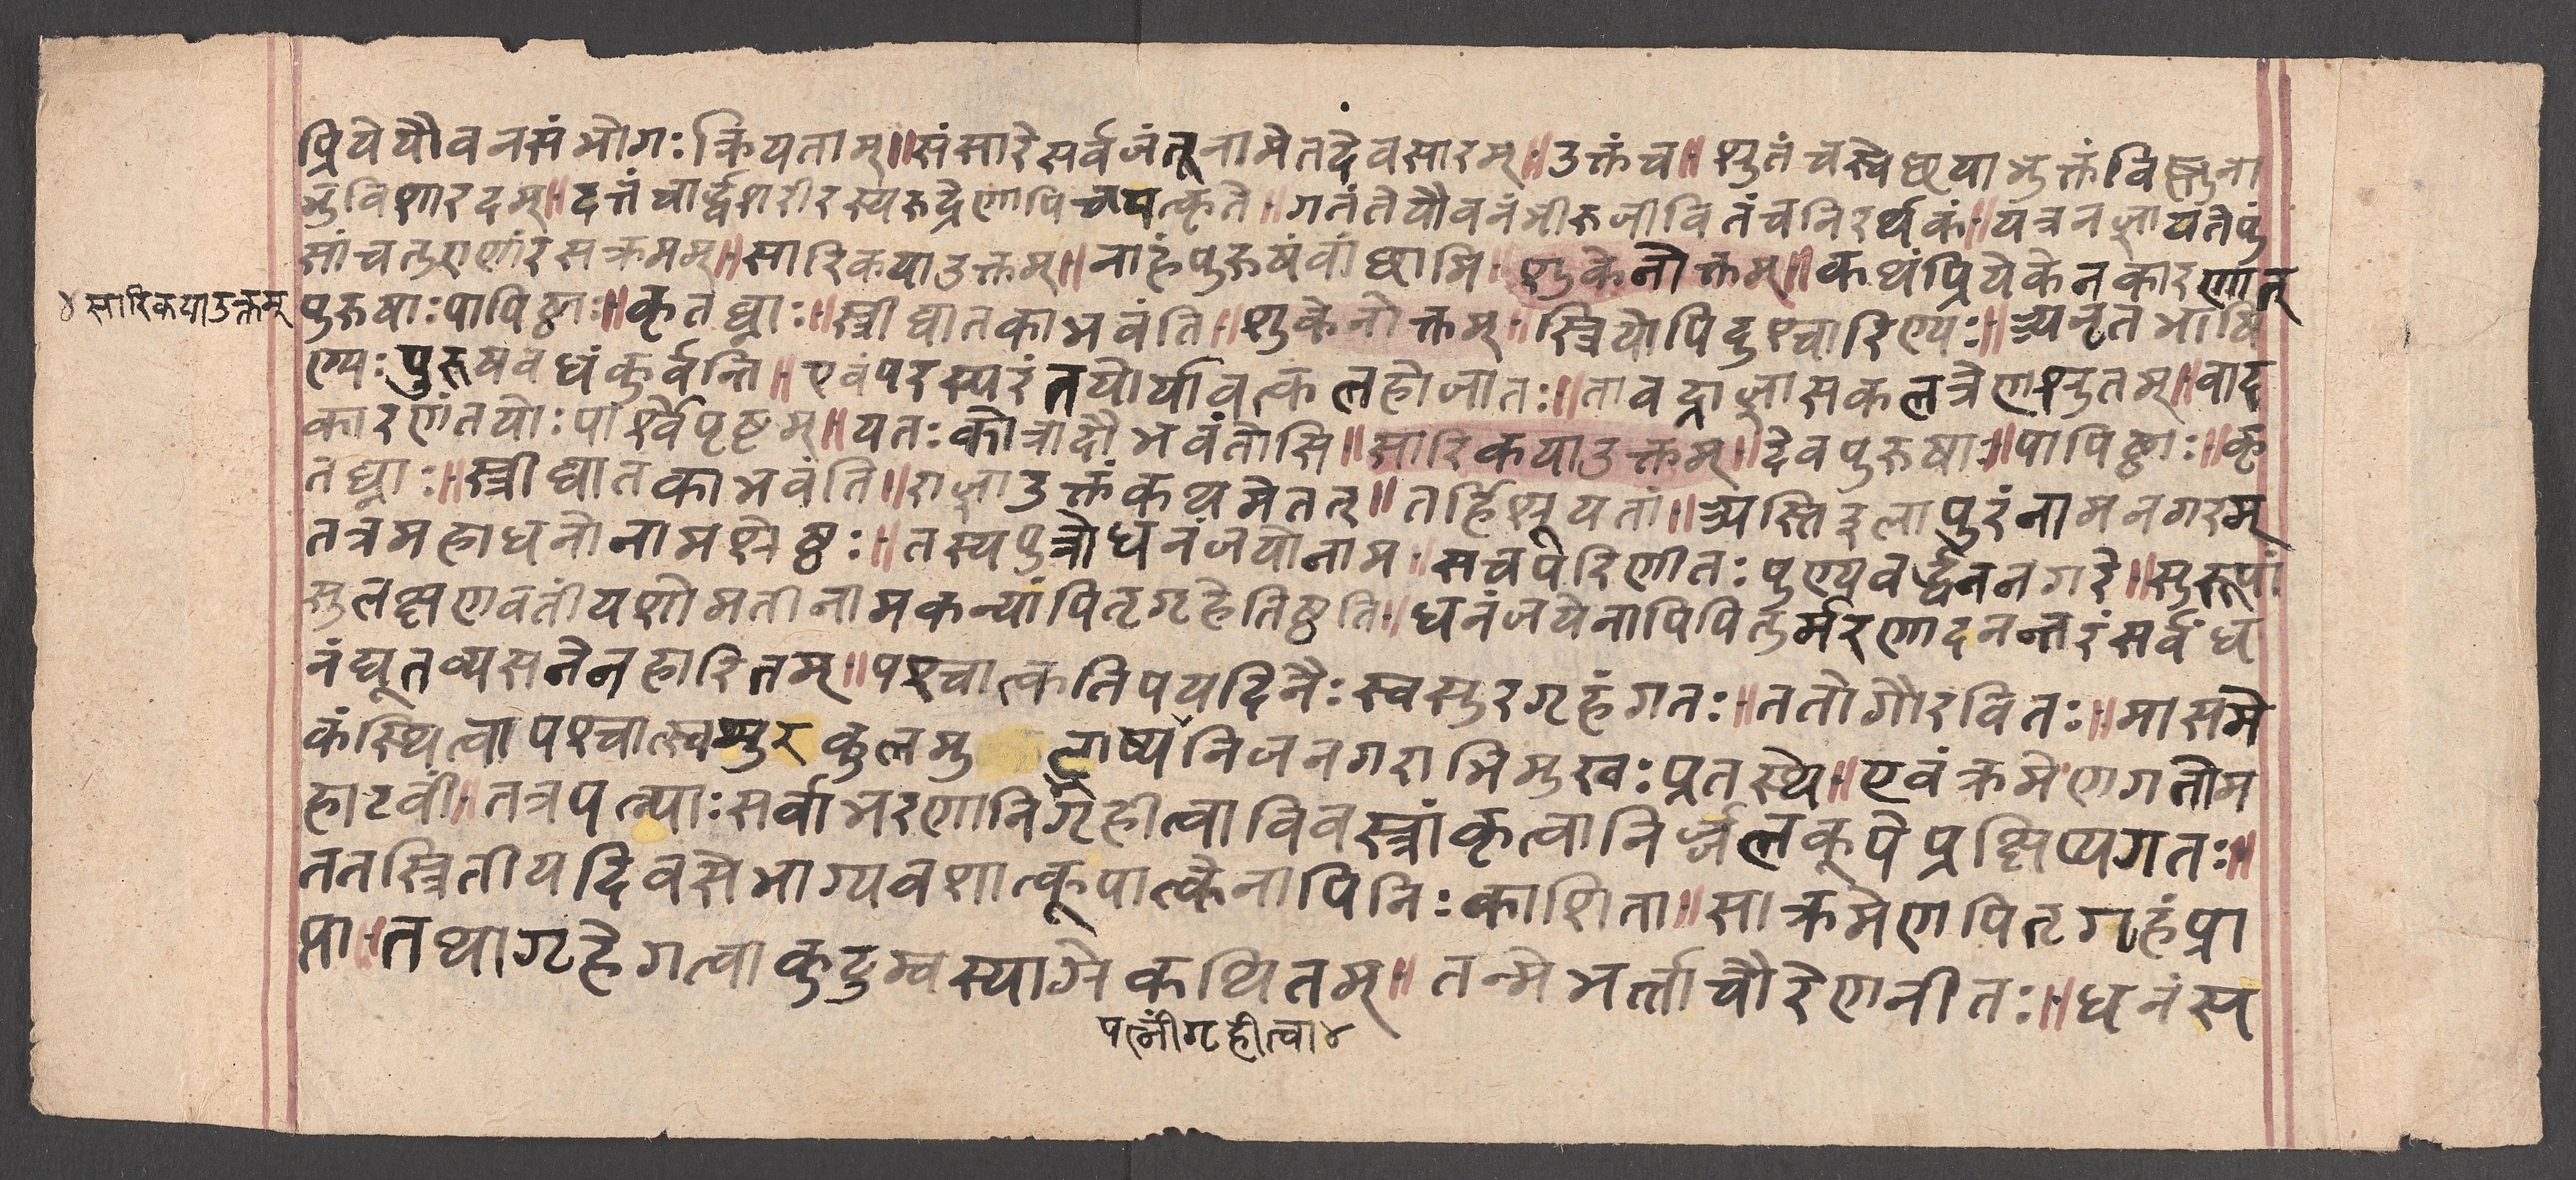 प्रियेयौवनसंभोगःक्रियताम्॥संसारेसर्वजंतूनामेतदेवसारम्॥उक्तंच॥श्रुतंचस्वेछयाभुक्तंविष्णुना
भुविशारदम्॥दत्तंचार्द्धशरीरस्यरुद्रेणापिचयत्कृते॥गतंतेयौवनंभीरुजीवितंचनिरर्थकं॥यत्रनज्ञायतेपुं
सांचतुराणांरसक्रमम्॥सारिकयाउक्तम्॥नाहंपुरुषंवांछामि॥शुकेनोक्तम्॥कथंप्रियेकेनकारणात्
४सारिकयाउक्तम्
पुरुषाःपापिष्ठाः॥कृतघ्नाः॥स्त्रीघातकाभवंति॥शुकेनोक्तम्॥स्त्रियोपिदुश्चारिण्यः॥अनृतभाषि
ण्यःपुरुषवधंकुर्वन्ति॥एवंपरस्परंतयोर्यावत्कलहोजातः॥तावद्राज्ञासकलत्रेणश्रुतम्॥वाद
कारणंतयोःपार्श्वेपृष्टम्॥यतःकोत्रादौभवंतोसि॥सारिकयाउक्तम्॥देवपुरुषाः॥पापिष्ठाः॥कृ
तघ्नाः॥स्त्रीघातकाभवंति॥राज्ञाउक्तंकथमेतत्॥तर्हिश्रूयतां॥अस्तिइलापुरंनामनगरम्
तत्रमहाधनोनामश्रेष्ठः॥तस्यपुत्रोधनंजयोनाम॥सचपरिणीतःपुण्यवर्द्धननगरे॥सुरूपां
सुलक्षणवतींयशोमतीनामकन्यांपितृगृहेतिष्ठति॥धनंजयेनापिपितुर्मरणादनन्तरंसर्वंध
नंद्यूतव्यसनेनहारितम्॥पश्चात्कतिपयदिनैःस्वसुरगृहंगतः॥ततोगौरवितः॥मासमे
कंस्थित्वापश्चात्स्वसुरकुलमु निजनगराभिमुखःप्रतस्थे॥एवंक्रमेणगतोम
हाटवीं॥तत्रपत्न्याःसर्वाभरणानिगृहीत्वाविवस्त्रांकृत्वानिर्ज्जलकूपेप्रक्षिप्यगतः॥
ततस्त्रितीयदिवसेभाग्यवशात्कूपात्केनापिनिःकाशिता॥साक्रमेणपितृगृहंप्रा
प्ता॥तथागृहेगत्वाकुटुम्वस्याग्रेकथितम्॥तन्मेभर्त्ताचौरेणनीतः॥धनंस्य
पत्नींगृहीत्वा४